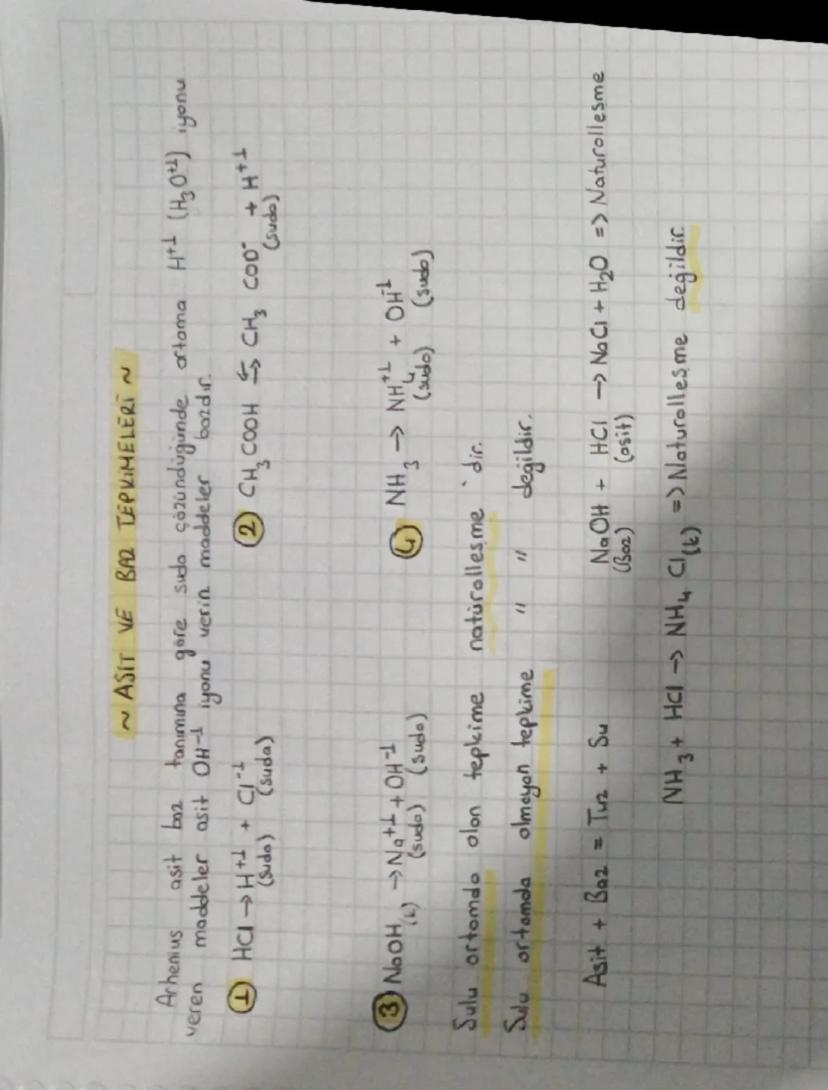 ~ ASİT VE BAZ TEPKİMELERİ ~
Arhenius asit baz tanımına göre suda çözündüğünde ortama H⁺¹ (H₃O⁺¹) iyonu
veren maddeler asit OH⁻¹ iyonu verin maddeler bazdır.
① HCl → H⁺¹ + Cl⁻¹ ② CH₃COOH ⇆ CH₃ COO⁻ + H⁺¹
(suda) (suda) (suda)
③ NaOH(k) → Na⁺¹ + OH⁻¹ ④ NH₃ → NH₄⁺¹ + OH⁻¹
(suda) (suda) (suda) (suda)
Sulu ortamda olan tepkime natürolleşme 'dir.
Sulu ortamda olmayan tepkime " " değildir.
Asit + Baz = Tuz + Su NaOH + HCl → NaCl + H₂O => Naturollesme
(Baz) (asit)
NH₃ + HCl → NH₄ Cl(k) => Naturollesme değildir.